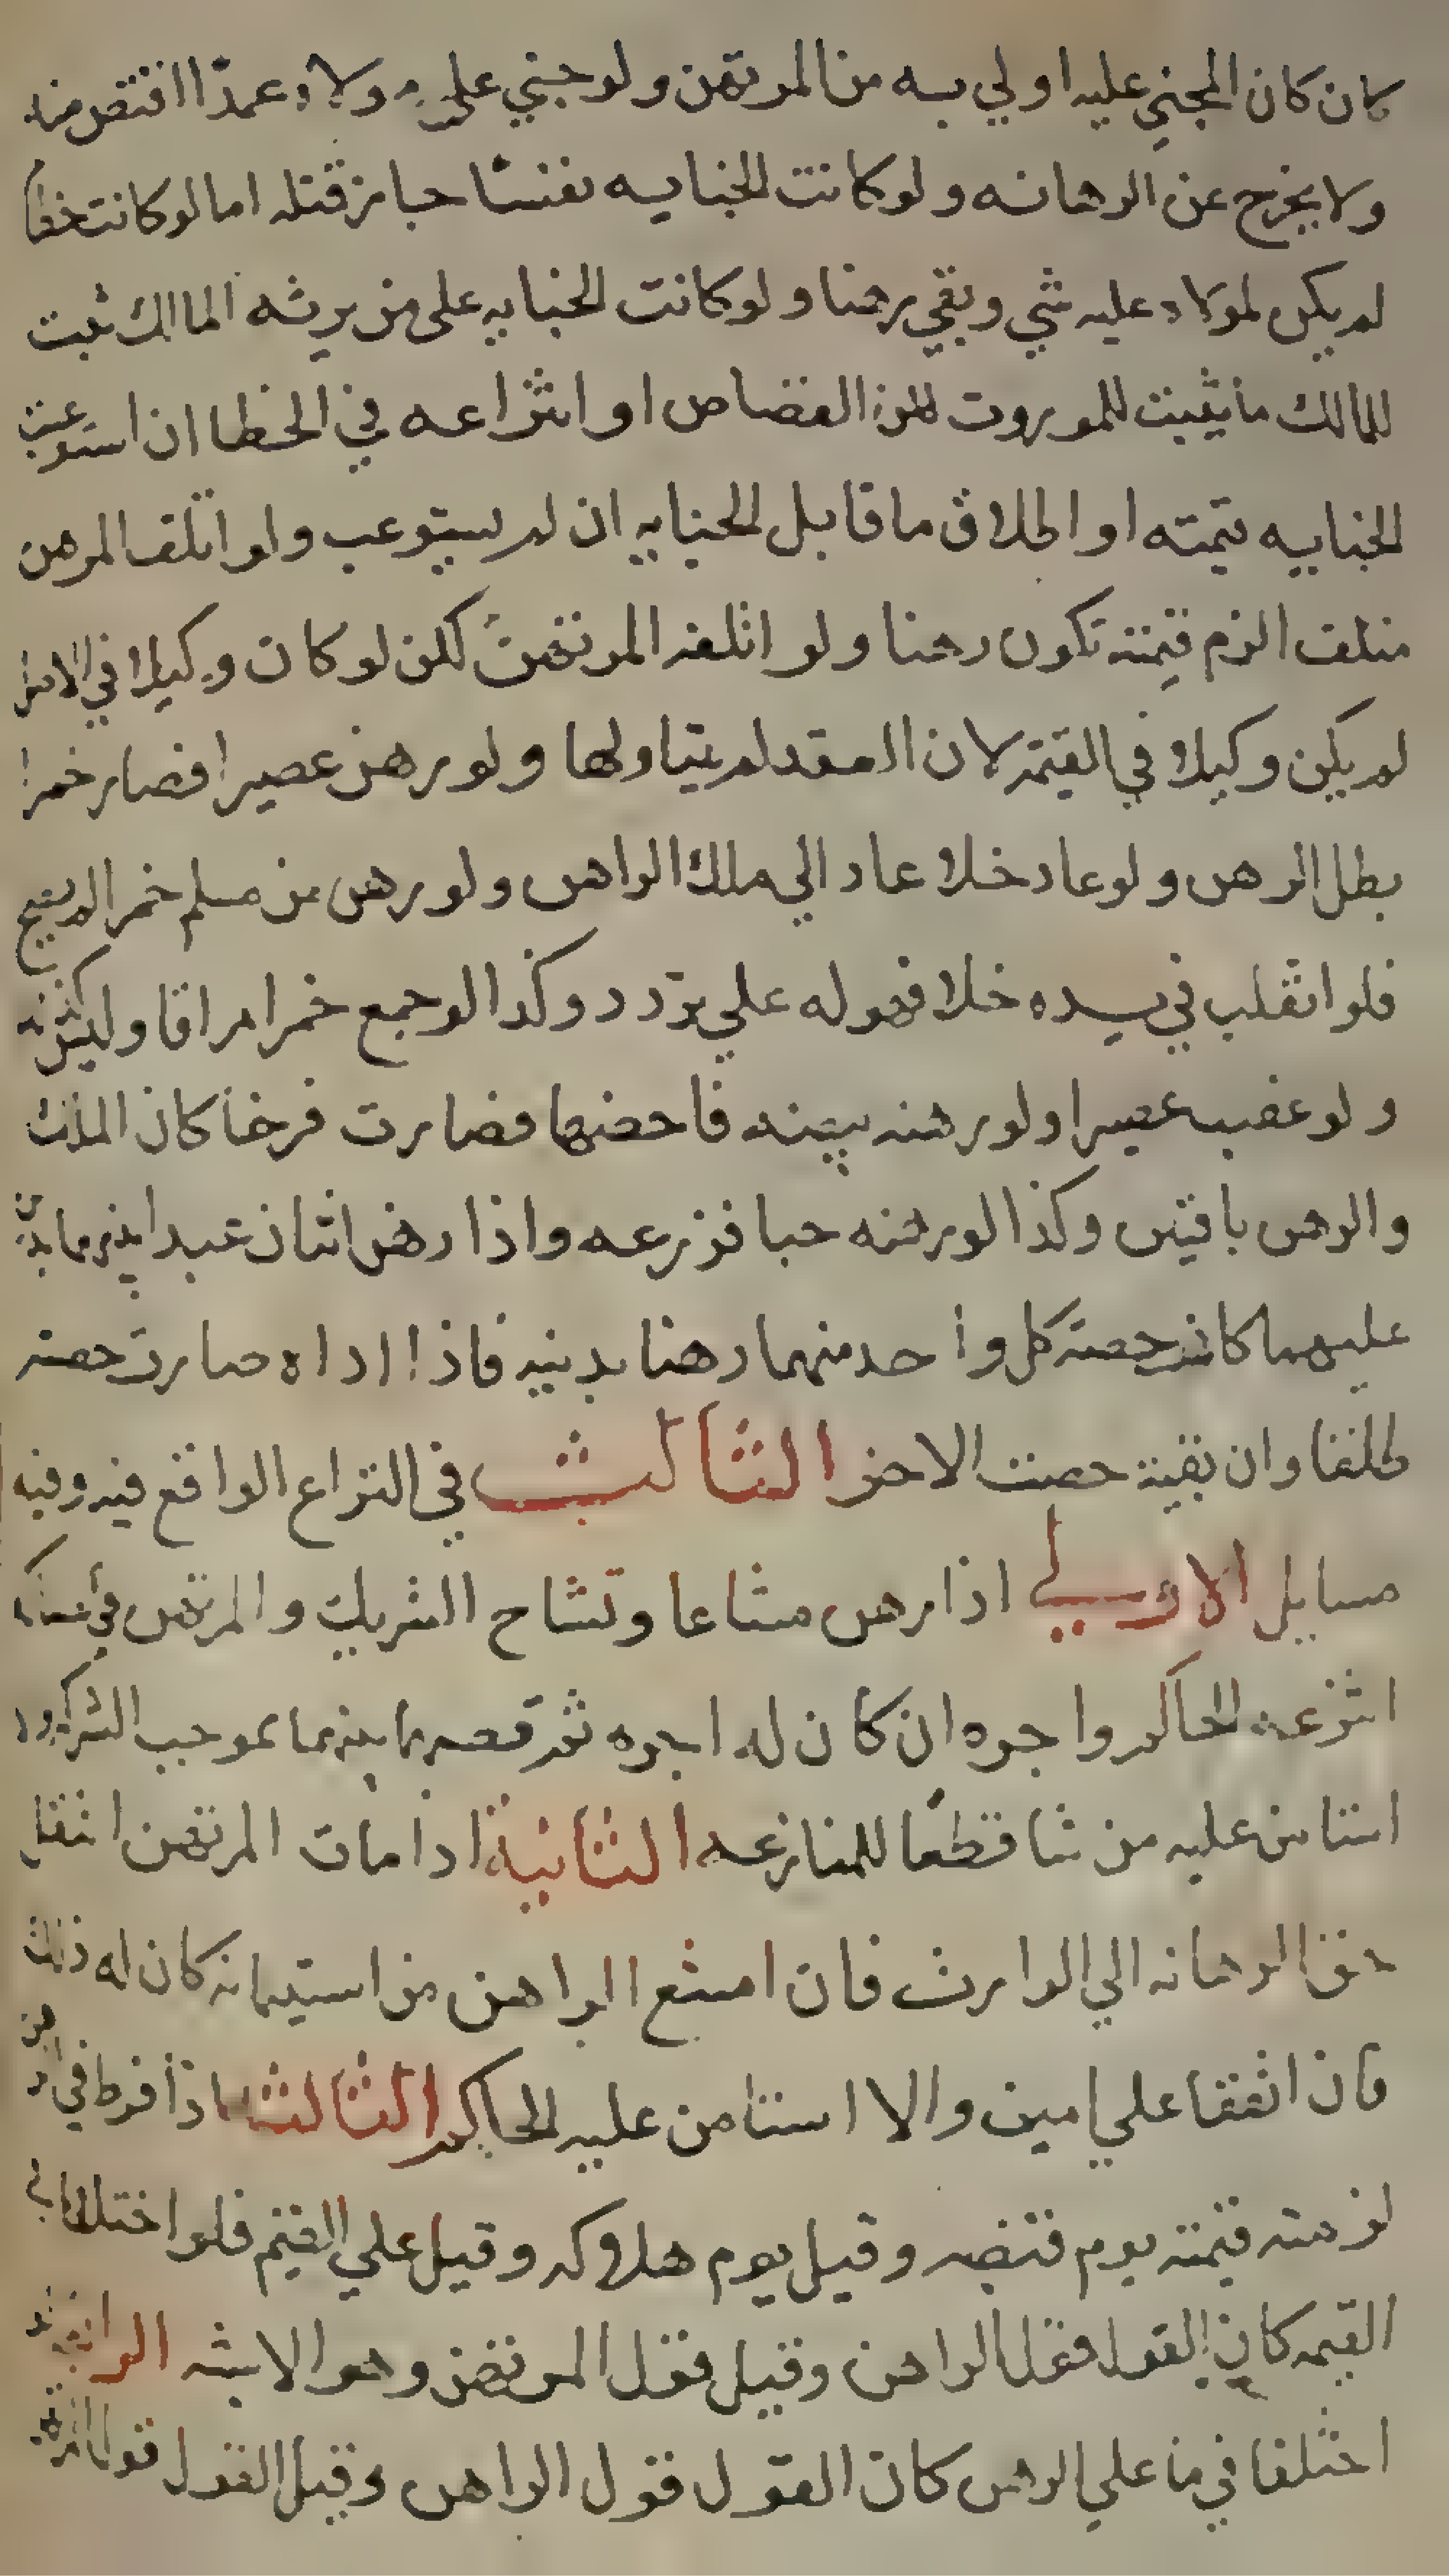 كان كان المجني عليه اولي به من المرتهن ولو جني علي مولاه عمدا اقتص منه
ولا يخرج عن الرهانه ولو كانت الجنايه نفسا جاز قتله اما لو كانت خطا
لم يكن لمولاه عليه شي وبقي رهنا ولو كانت الجنايه علي من يرثه المالك ثبت
للمالك ما يثبت للموروث من القصاص او انتزاعه في الخطا ان استوعبت
الجنايه قيمته او اطلاق ما قابل الجنايه ان لم يستوعب ولو اتلف الرهن
متلف الزم قيمته تكون رهنا ولو اتلفه المرتهن لكن لو كان وكيلا في الاصل
لم يكن وكيلا في القيمة لان العقد لم يتناولها ولو رهن عصيرا فصار خمرا
بطل الرهن ولو عاد خلا عاد الي ملك الراهن ولو رهن من مسلم خمرا لم يصح
فلو انقلب في يده خلا فهو له علي تردد وكذا لو جمع خمرا مراقا وليس كذلك
ولو غصب عصيرا ولو رهنه بيضه فاحضنها فصارت فرخا كان الملك
والرهن باقيين وكذا لو رهنه حبا فزرعه واذا رهن اثنان عبدا بينهما بدين
عليهما كانت حصة كل واحد منهما رهنا بدينه فاذا اداه صارت حصته
طلقا وان بقية حصت الاخر الثالث في النزاع الواقع فيه وفيه
مسايل الاولي اذا رهن مشاعا وتشاح الشريك والمرتهن في امساكه
انتزعه الحاكم واجره ان كان له اجره ثم قسمها بينهما بموجب الشركه والا
استامن عليه من شا قطعا للمنازعه الثانية اذا مات المرتهن انتقل
حق الرهانه الي الوارث فان امتنع الراهن من استيمانه كان له ذلك
فان اتفقا علي امين والا استامن عليه الحاكم الثالثه اذا فرط في الرهن
لزمته قيمته يوم قبضه وقيل يوم هلاكه وقيل علي القيم فلو اختلفا في
القيمه كان القول قول الراهن وقيل قول المرتهن وهو الاشبه الرابعه
اختلفا في ما علي الرهن كان القول قول الراهن وقيل القول قول المرتهن